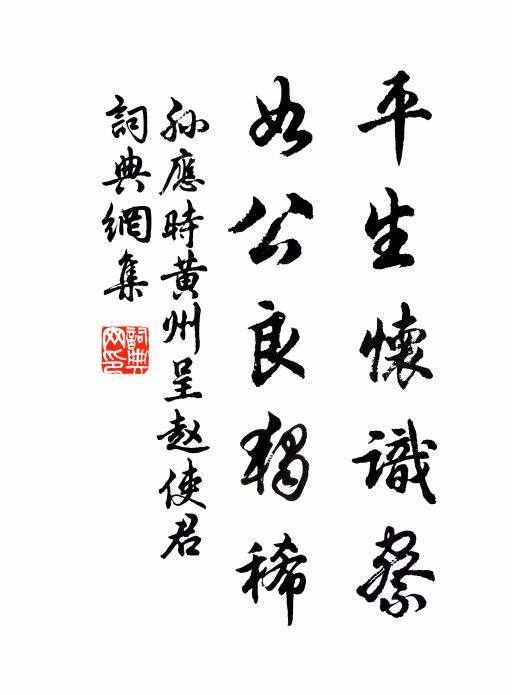 平生懷識察
如公良獨稀
孫應時黃州呈趙使君
詞典網集
詞典网印